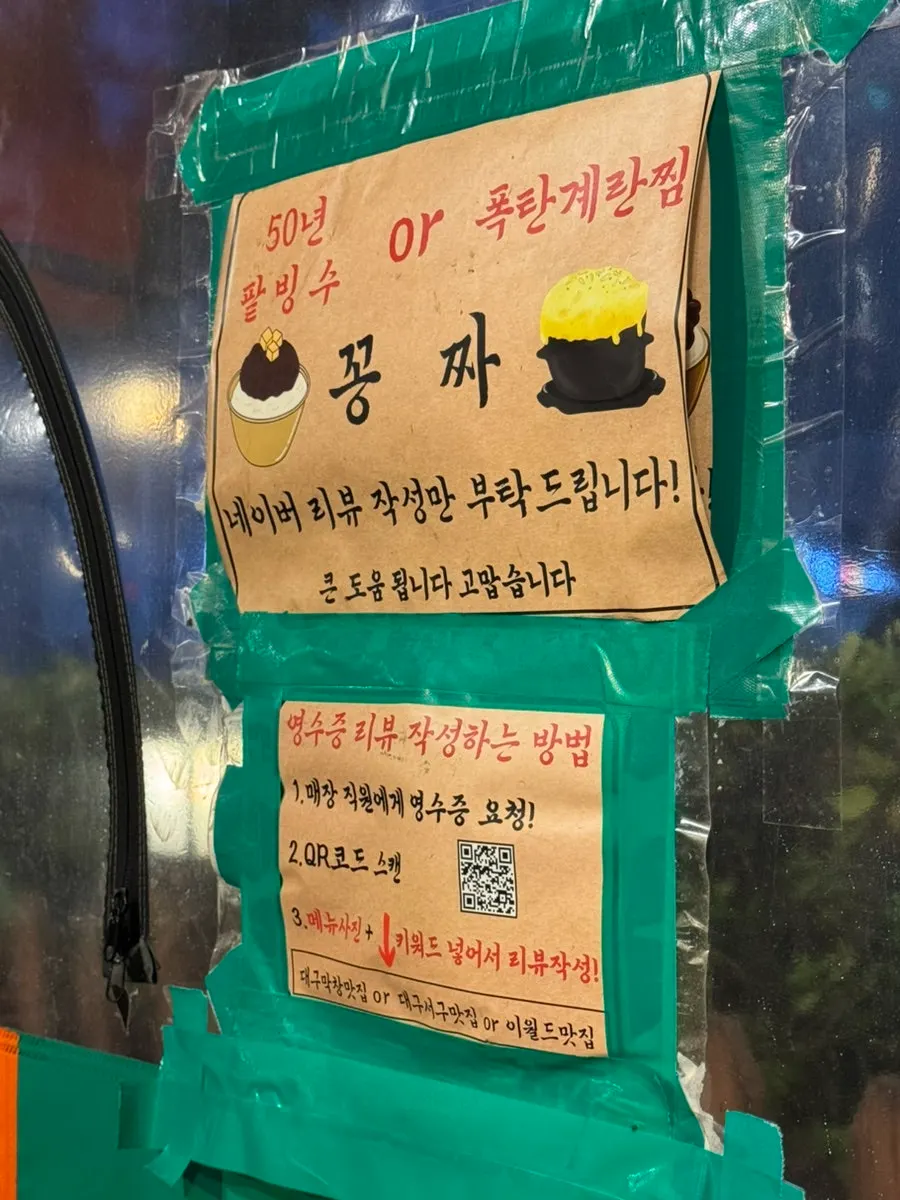 50년
팥빙수
or
폭탄계란찜
꽁 짜
네이버 리뷰 작성만 부탁드립니다!
큰 도움 됩니다 고맙습니다
영수증 리뷰 작성하는 방법
1.매장 직원에게 영수증 요청!
2.QR코드 스캔
3.메뉴사진+↓키워드 넣어서 리뷰작성!
대구막창맛집 or 대구서구맛집 or 이월드맛집